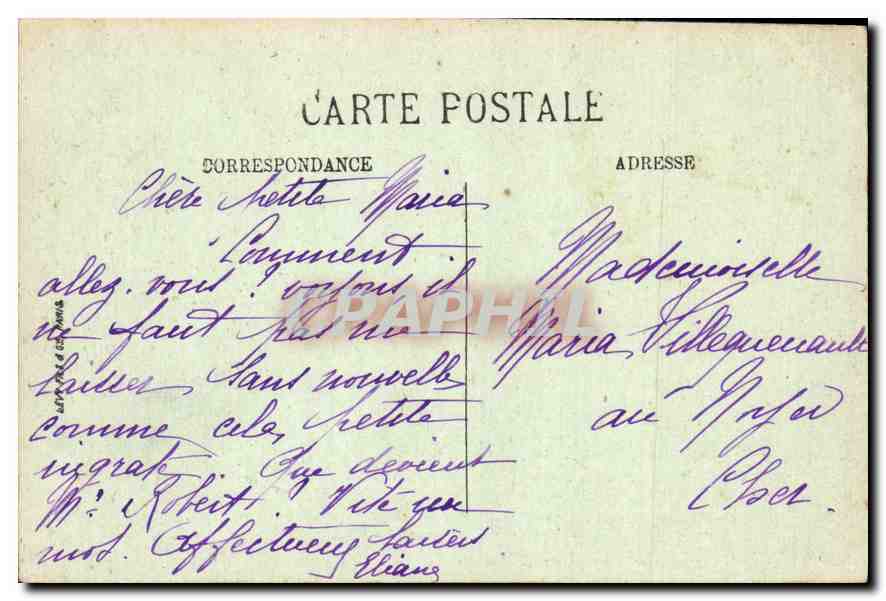 CARTE POSTALE
CORRESPONDANCE
ADRESSE
Chère petite Maria
Comment
allez-vous? voyons il
ne faut pas me
laisser sans nouvelle
comme cela, petite
ingrate. Que devient
Mr. Robert? Vite un
mot. Affectueux baisers
Eliane
Mademoiselle
Maria Villeguenault
au Noyer
Cher.
LEVY FILS & Cie PARIS
CPAPHIL